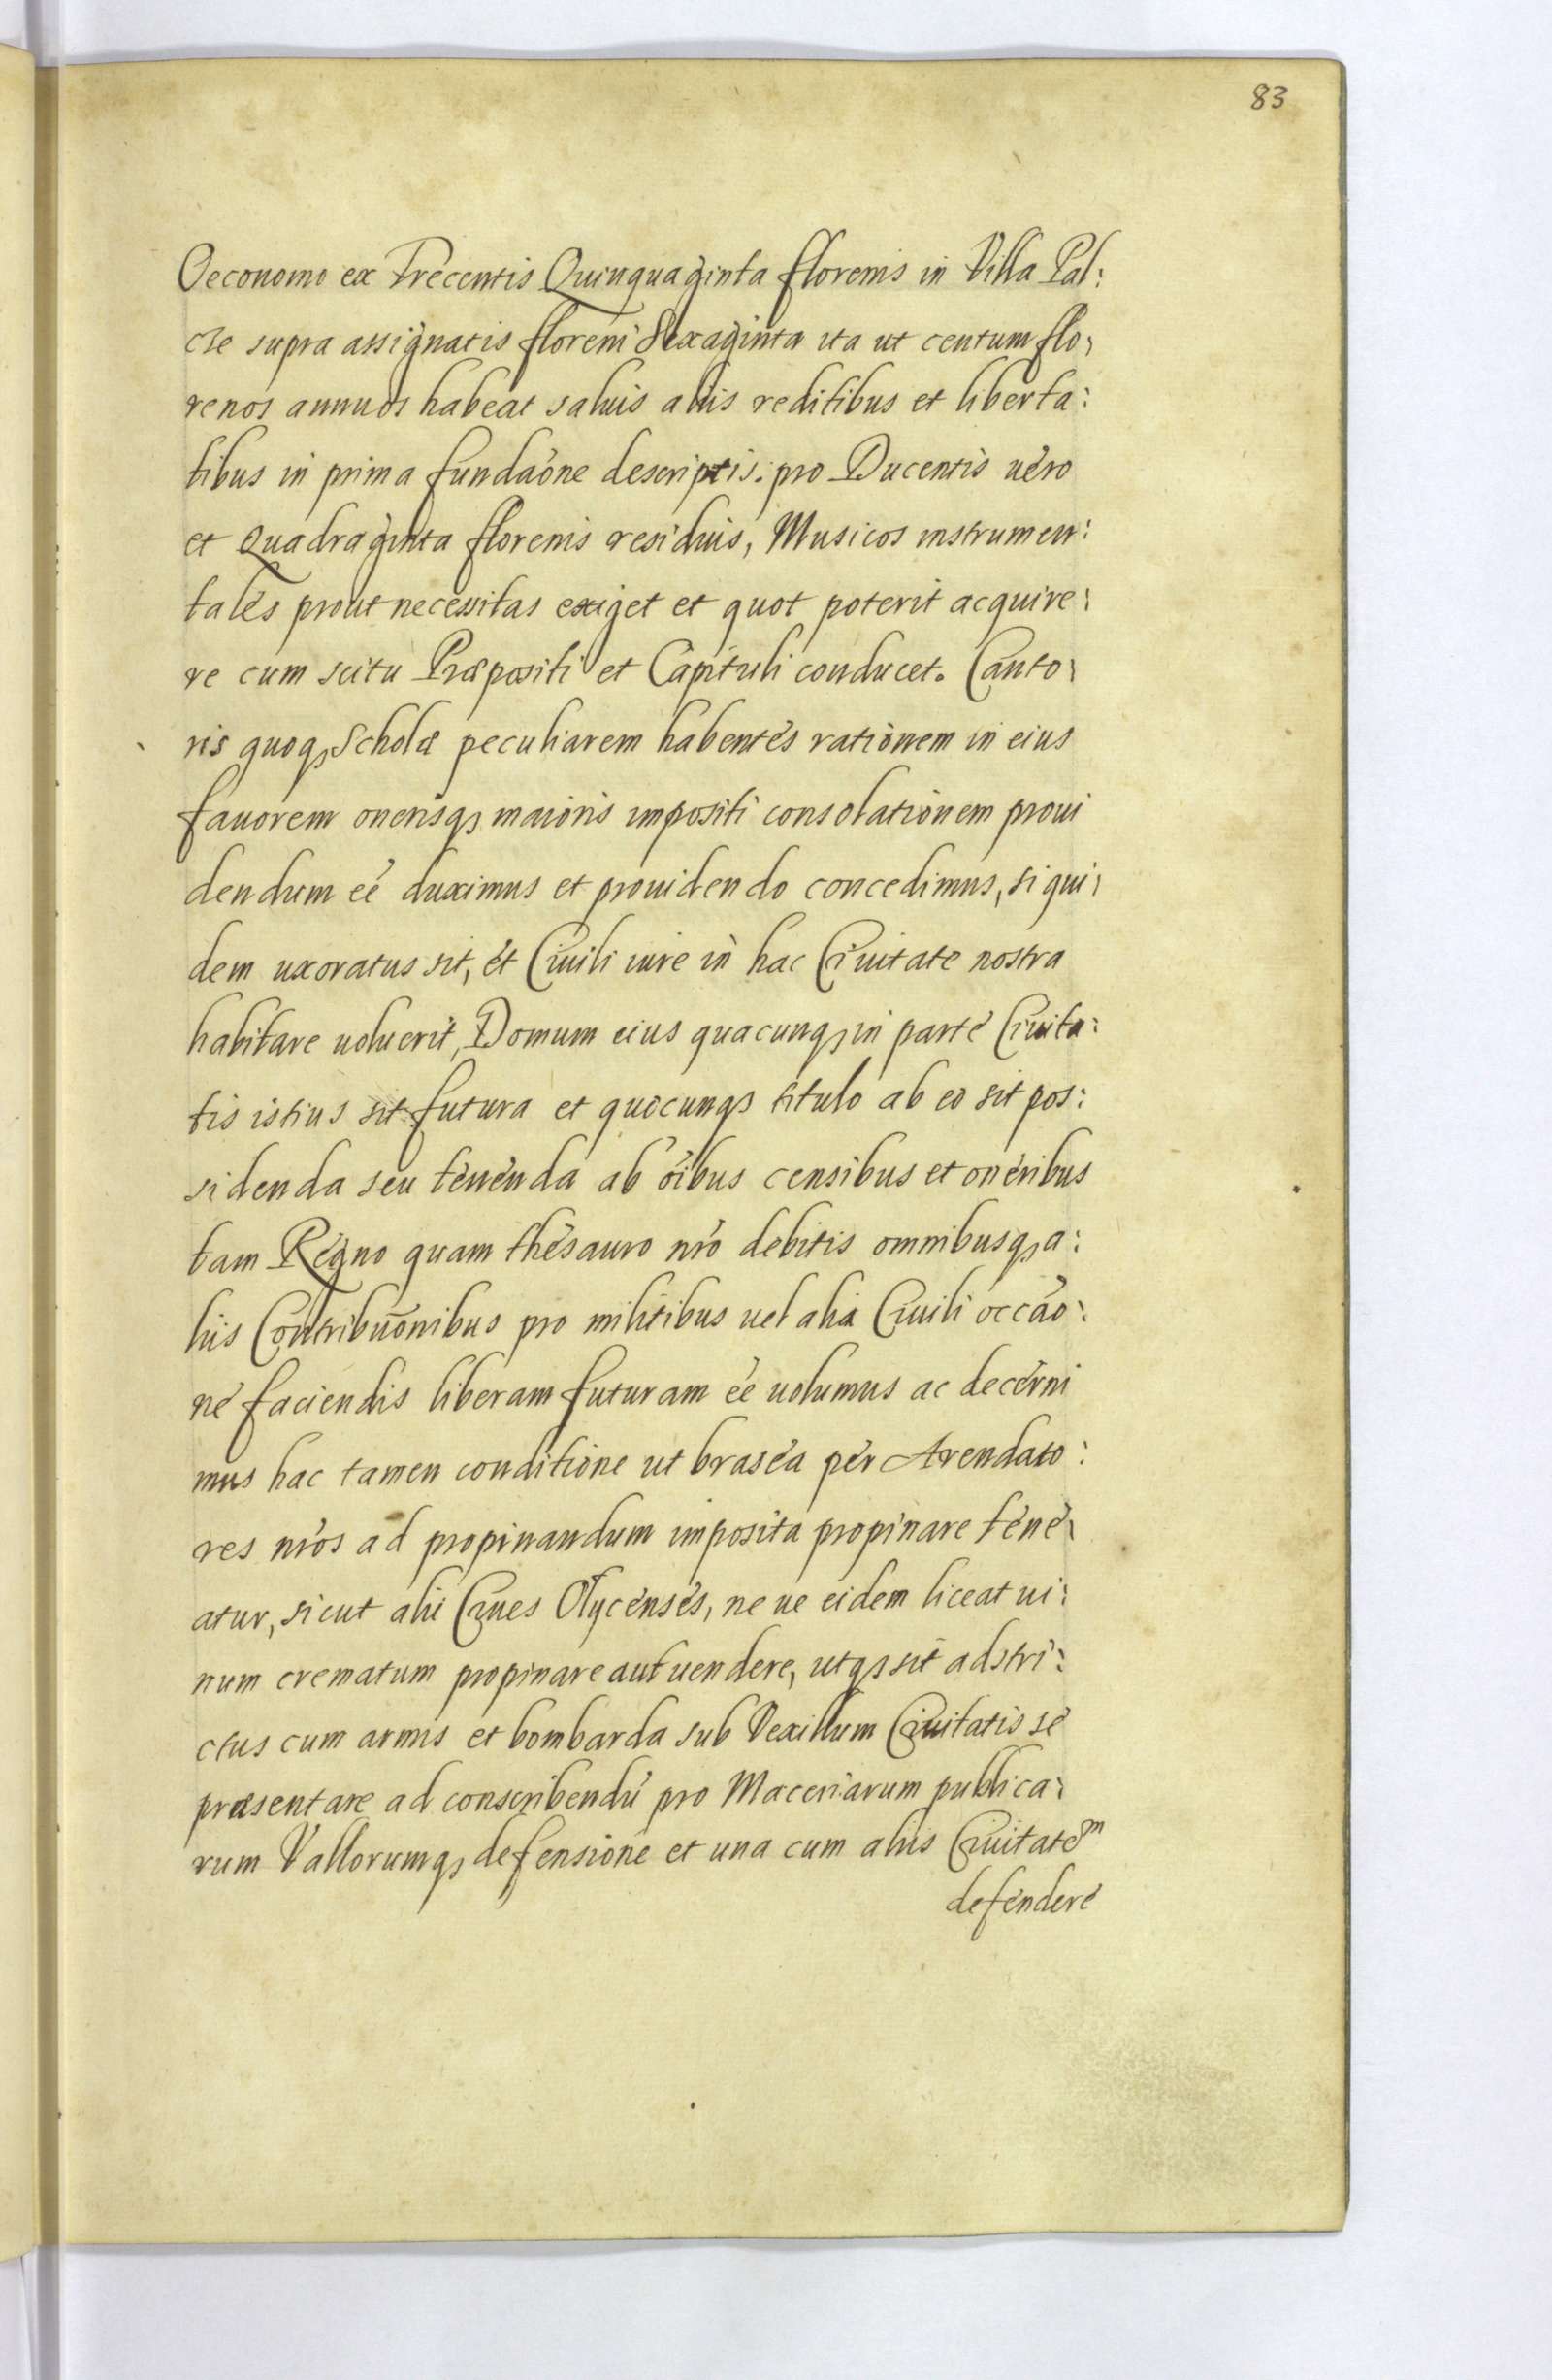 83
Oeconomo ex Trecentis Quinquaginta florenis in Villa Pal:
cze supra assignatis floreni Sexaginta ita ut centum flo:
renos annuos habeat saluis alijs reditibus et liberta:
tibus in prima fundaóne descriptis. pro Ducentis uéro
et Quadraginta florenis residuis, Musicos instrumen:
talés prout necessitas exiget et quot poterit acquire:
re cum scitu Præpositi et Capituli conducet. Canto:
ris quoqꝫ Scholæ peculiarem habentés rationem in eius
fauorem onerisqꝫ maioris impositi consolationem proui
dendum eé duximus et prouidendo concedimus, si qui:
dem uxoratus sit, ét Ciuili iure in hac Ciuitate nostra
habitare uoluerit, Domum eius quacunqꝫ in parté Ciuita:
tis istius sit futura et quocunqꝫ titulo ab eo sit pos:
sidenda seu tenénda ab óibus censibus et onéribus
tam Régno quam thésauro nró debitis omnibusqꝫ a:
lijs Contribuōnibus pro militibus uel alia Ciuili occáo:
né faciendis liberam futuram eé uolumus ac decérni
mus hac tamen conditione ut braséa pér Arendato:
res nrós ad propinandum imposita propinare téné:
atur, sicut alij Ciues Olycénsés, ne ue eidem liceat ui:
num crematum propinare aut uendere, utqꝫ sit adstri:
ctus cum armis et bombarda sub Vexillum Ciuitatis sé
præsentare ad conscribendú pro Maceriarum publica:
rum Vallorumqꝫ defensioné et una cum alijs Ciuitatéᵐ
deféndere